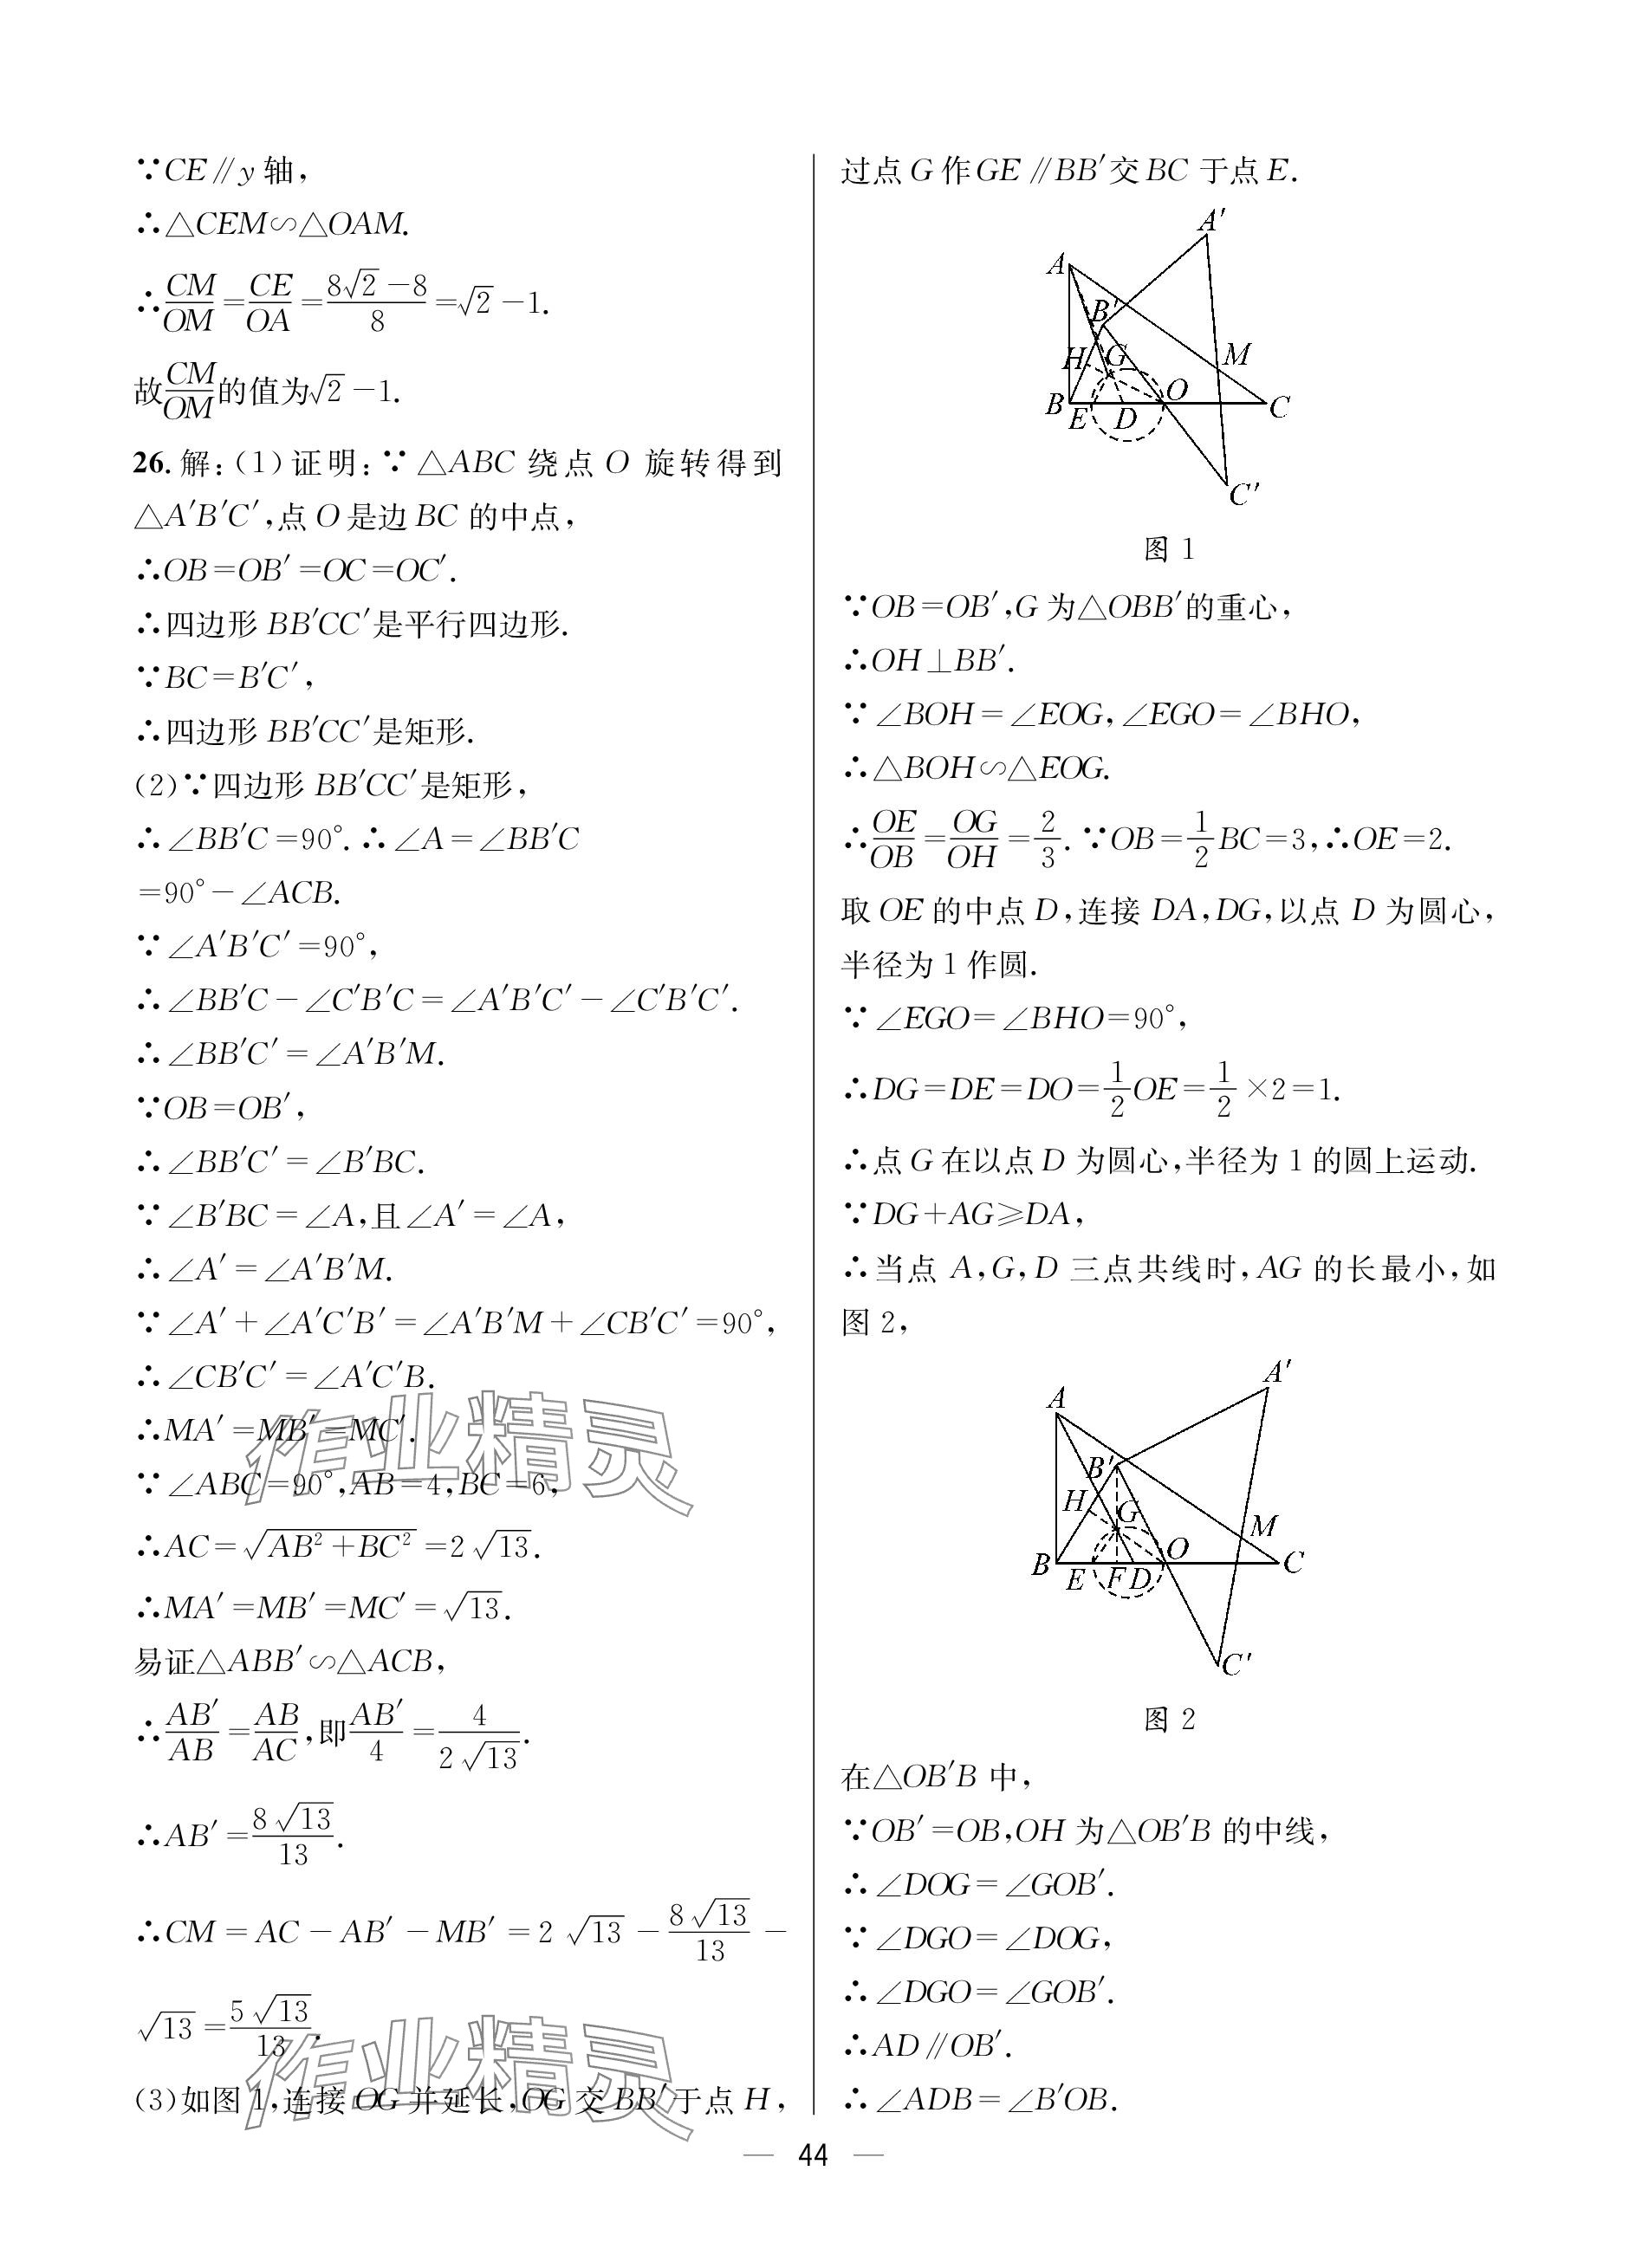 ∵CE∥y轴,
∴△CEM∽△OAM.
∴CM/OM=CE/OA=(8√2-8)/8=√2-1.
故CM/OM的值为√2-1.
26.解:(1)证明:∵△ABC绕点O旋转得到
△A′B′C′,点O是边BC的中点,
∴OB=OB′=OC=OC′.
∴四边形BB′CC′是平行四边形.
∵BC=B′C′,
∴四边形BB′CC′是矩形.
(2)∵四边形BB′CC′是矩形,
∴∠BB′C=90°.∴∠A=∠BB′C
=90°-∠ACB.
∵∠A′B′C′=90°,
∴∠BB′C-∠C′B′C=∠A′B′C′-∠C′B′C′.
∴∠BB′C′=∠A′B′M.
∵OB=OB′,
∴∠BB′C′=∠B′BC.
∵∠B′BC=∠A,且∠A′=∠A,
∴∠A′=∠A′B′M.
∵∠A′+∠A′C′B′=∠A′B′M+∠CB′C′=90°,
∴∠CB′C′=∠A′C′B.
∴MA′=MB′=MC′.
∵∠ABC=90°,AB=4,BC=6,
∴AC=√(AB²+BC²)=2√13.
∴MA′=MB′=MC′=√13.
易证△ABB′∽△ACB,
∴AB′/AB=AB/AC,即AB′/4=4/(2√13).
∴AB′=8√13/13.
∴CM=AC-AB′-MB′=2√13-8√13/13-
√13=5√13/13.
(3)如图1,连接OG并延长,OG交BB′于点H,
作业精灵
作业精灵
过点G作GE∥BB′交BC于点E.
A′
A
B′
H G M
B E D O C
C′
图1
∵OB=OB′,G为△OBB′的重心,
∴OH⊥BB′.
∵∠BOH=∠EOG,∠EGO=∠BHO,
∴△BOH∽△EOG.
∴OE/OB=OG/OH=2/3.∵OB=1/2BC=3,∴OE=2.
取OE的中点D,连接DA,DG,以点D为圆心,
半径为1作圆.
∵∠EGO=∠BHO=90°,
∴DG=DE=DO=1/2OE=1/2×2=1.
∴点G在以点D为圆心,半径为1的圆上运动.
∵DG+AG≥DA,
∴当点A,G,D三点共线时,AG的长最小,如
图2,
A′
A
B′
H G M
B E F D O C
C′
图2
在△OB′B中,
∵OB′=OB,OH为△OB′B的中线,
∴∠DOG=∠GOB′.
∵∠DGO=∠DOG,
∴∠DGO=∠GOB′.
∴AD∥OB′.
∴∠ADB=∠B′OB.
— 44 —